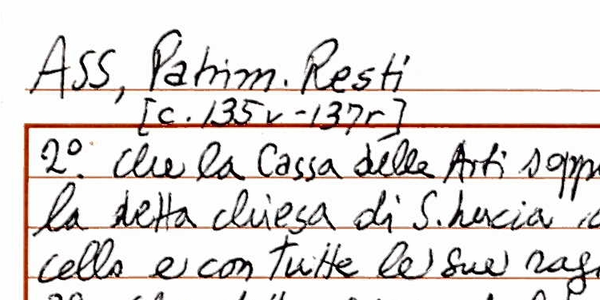 ASS, Patrim. Resti
[c. 135v-137r]
2º. che la Cassa delle Arti sopp
la detta chiesa di S. Lucia
cello e con tutte le sue rag